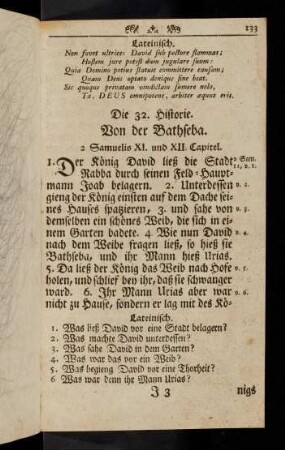 133
Lateinisch.
Non fovet ultrices David sub pectore flammas;
Hostem jure potest dum jugulare suum:
Quin Domino potius statuit committere causam;
Quam Deus optato denique fine beat.
Sic quoque privatam vindictam sumere nolo,
Tu, DEUS omnipotens, arbiter aequus eris.
Die 32. Historie.
Von der Bathseba.
2 Samuelis XI. und XII. Capitel.
1. Der König David ließ die Stadt
Rabba durch seinen Feld-Haupt-
mann Joab belagern. 2. Unterdessen
gieng der König einsten auf dem Dache sei-
nes Hauses spatzieren, 3. und sahe von
demselben ein schönes Weib, die sich in ei-
nem Garten badete. 4 Wie nun David
nach dem Weibe fragen ließ, so hieß sie
Bathseba, und ihr Mann hieß Urias.
5. Da ließ der König das Weib nach Hofe
holen, und schlief bey ihr, daß sie schwanger
ward. 6. Ihr Mann Urias aber war
nicht zu Hause, sondern er lag mit des Kö-
2 Sam.
11, v. 1.
v. 2.
v. 3.
v. 4.
v. 5.
v. 6.
Lateinisch.
1. Was ließ David vor eine Stadt belagern?
2. Was machte David unterdessen?
3. Was sahe David in dem Garten?
4. Was war das vor ein Weib?
5. Was begieng David vor eine Thorheit?
6 Was war denn ihr Mann Urias?
J 3
nigs